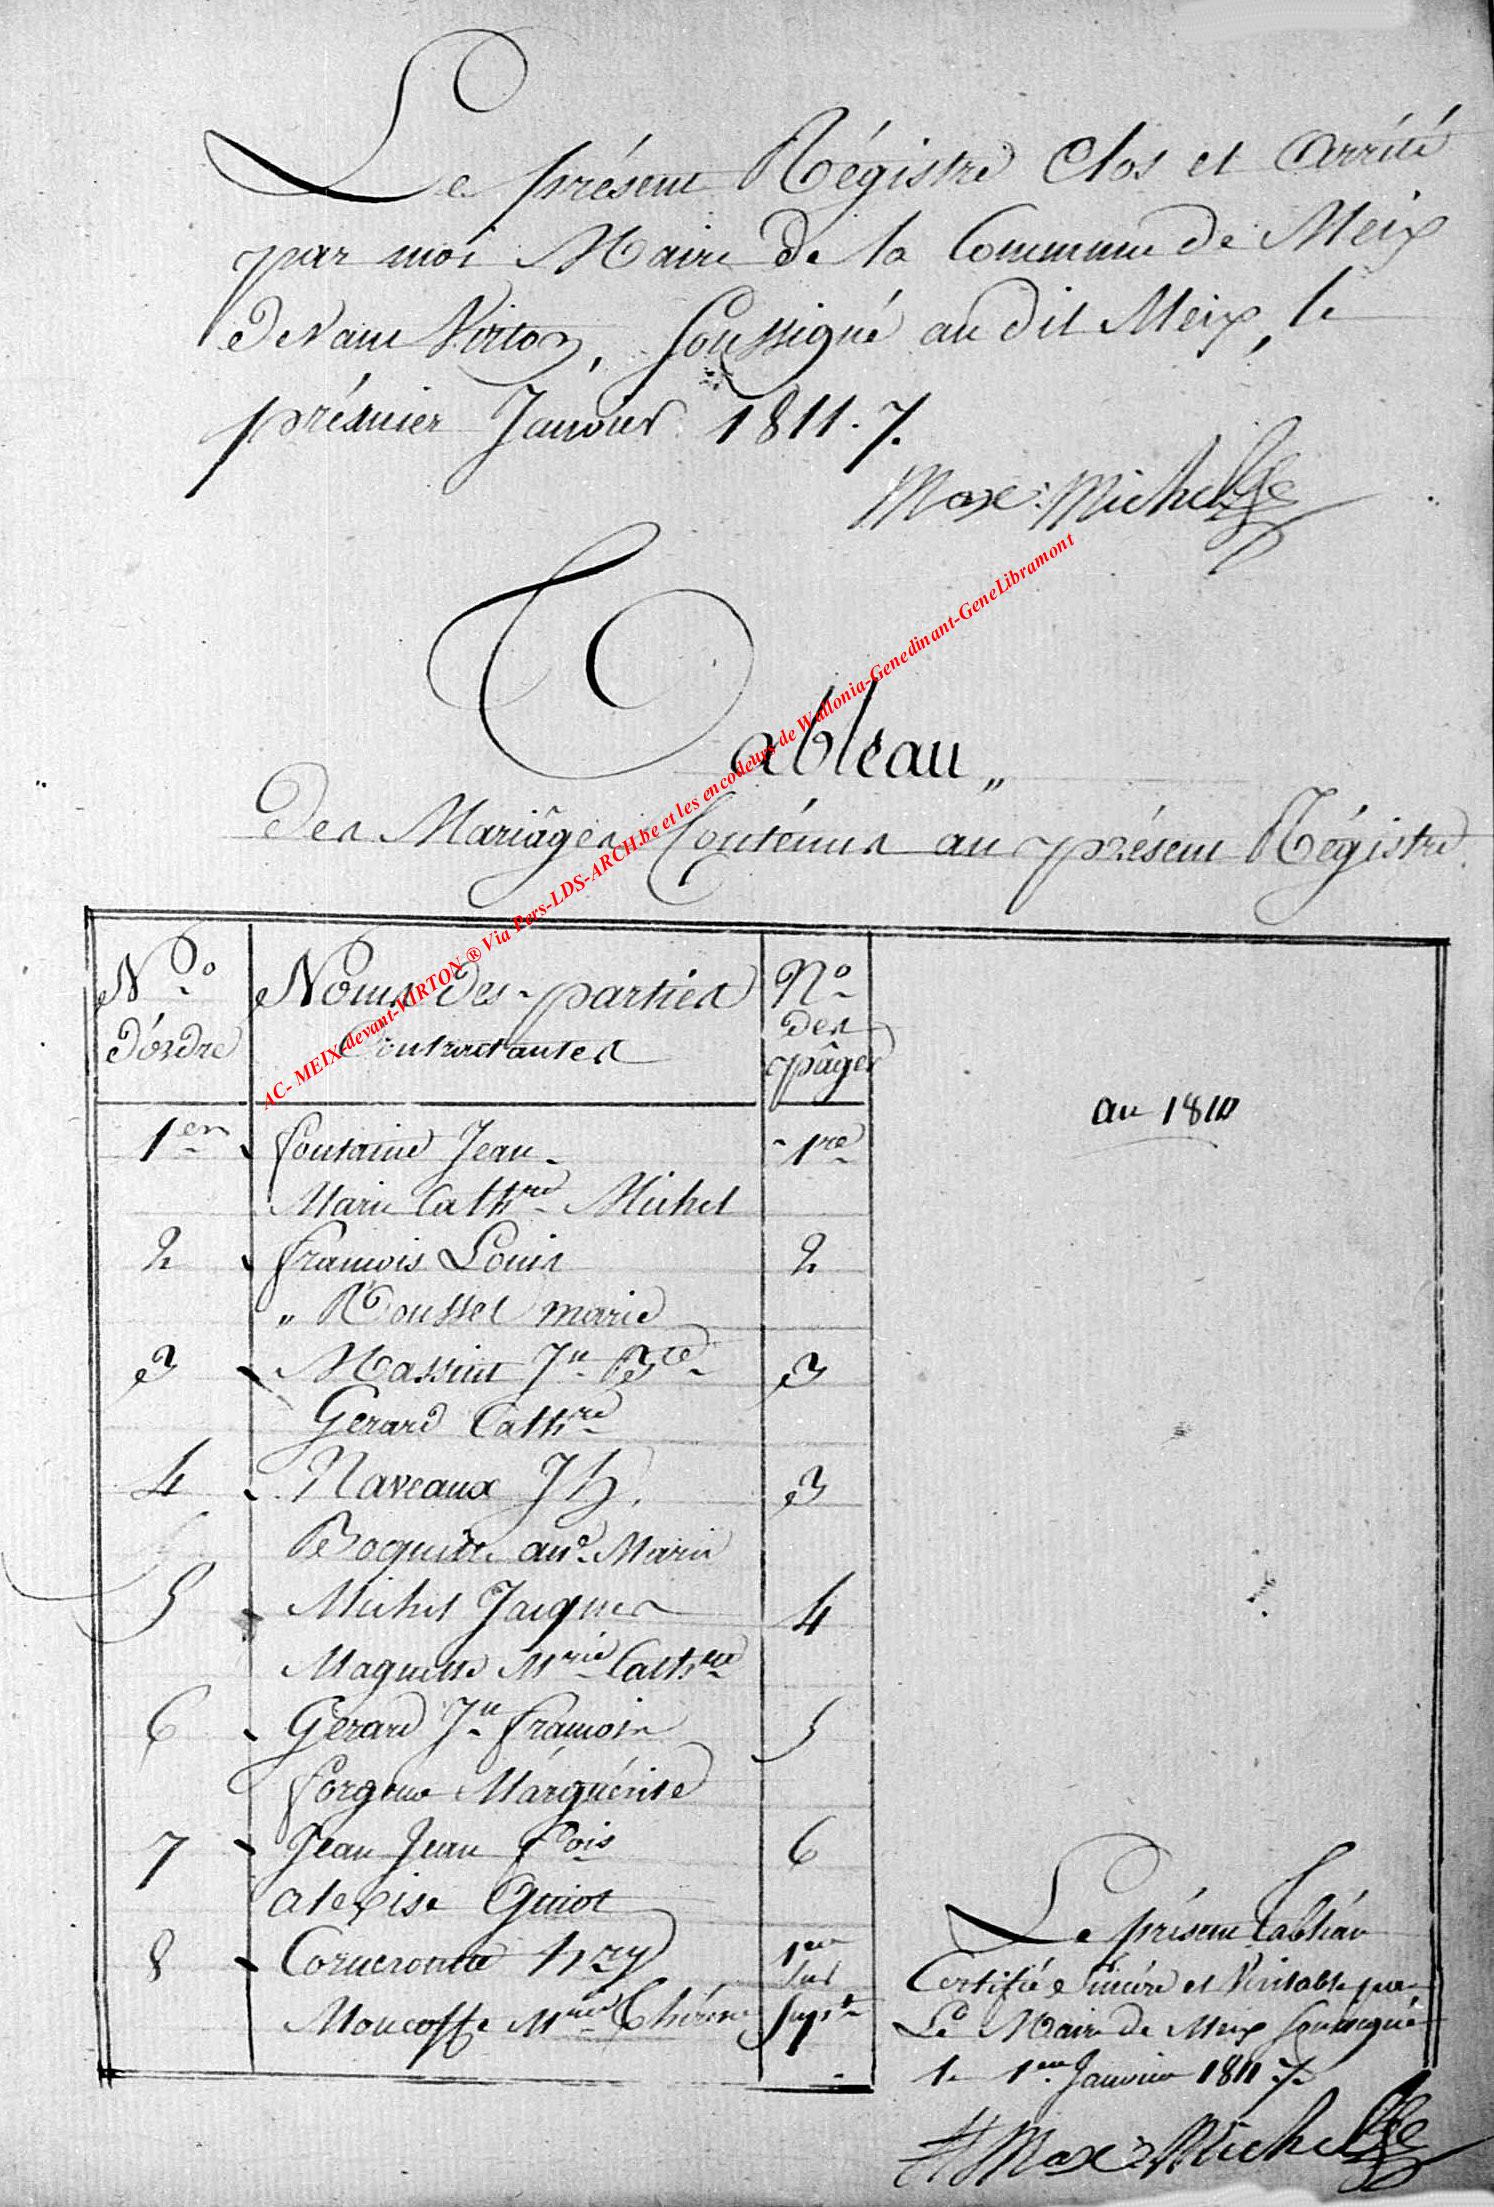 Le présent Régistre Clos et Arrêté
par moi Maire de la Commune de Meix
devant Virton, Soussigné au dit Meix, le
prémier Janvier 1811. 7.
Max: Michel
Tableau
Des Mariâges Conténus au présent Régistre
AC- MEIX-devant-VIRTON ® Via Pers-LDS-ARCH.be et les encodeurs de Wallonia-Genedinant-GeneLibramont
No d'órdre Noms des parties Contractantes No des pâges
an 1810
1er fontaine Jean 1re
Marie Cathre Michel
2 francois Louis 2
" Rousset marie
3 Massint Jn Bte 3
Gerard Cathre
4 Naveaux Jh. 3
anne Marie
5 Michel Jacques 4
Maquette Mrie Cathne
6 Gerard Jn francois 5
Marguérite
7 Jean Jean fois 6
Alexise Guiot
8 Hry 1er sur
Moucosse Mrie Thérèse Supt
Le présent Tabléau
Certifié Sincére et Véritable par
Le Maire de Meix soussigné
le 1er Janvier 1811 7.
Max: Michel